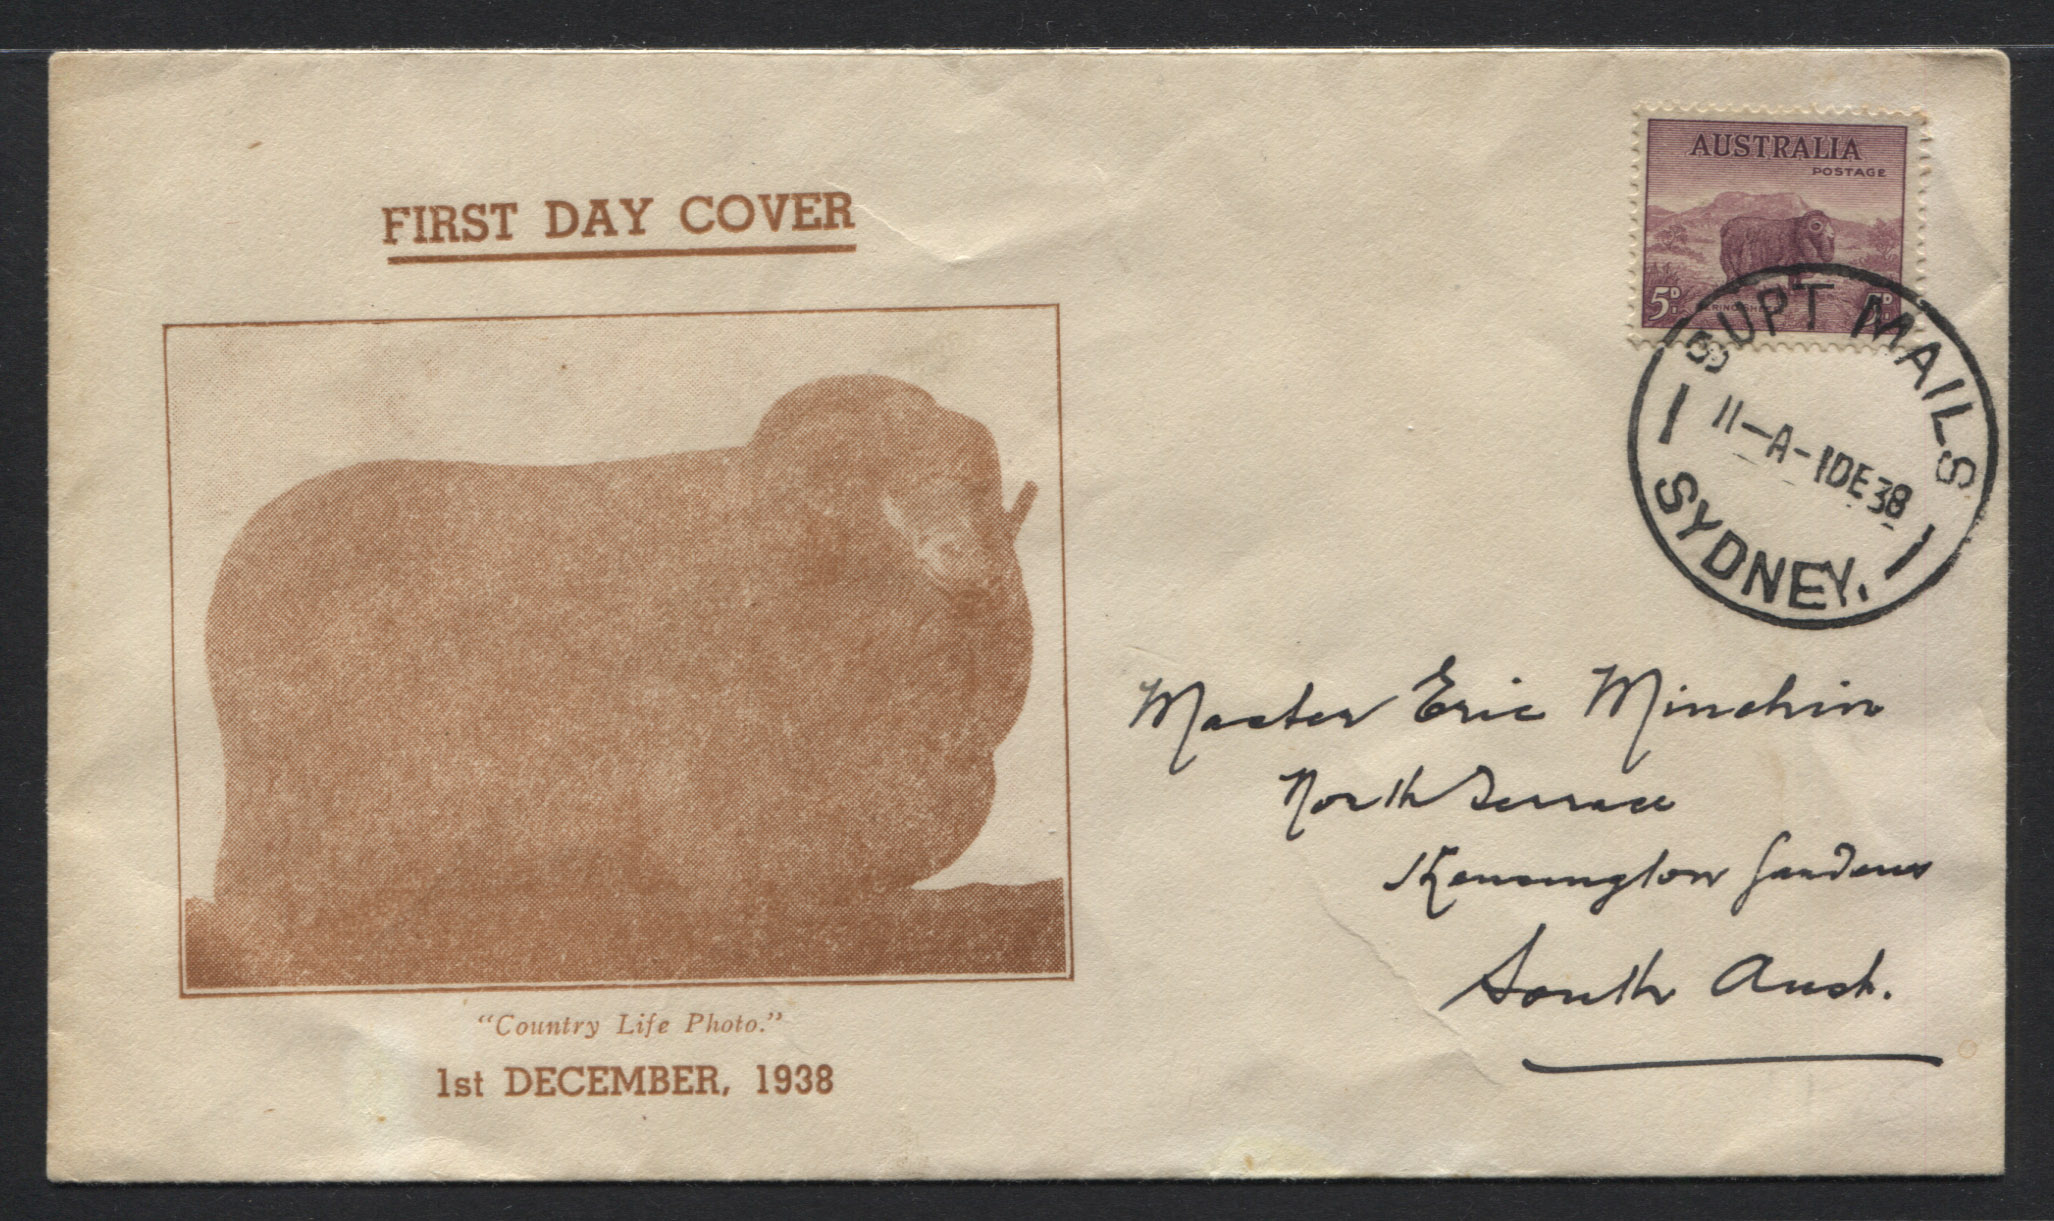 FIRST DAY COVER
AUSTRALIA
POSTAGE
5D 5D
SUPT MAILS
11-A-1DE38
SYDNEY.
Master Eric Minchin
North Terrace
Kensington Gardens
South Aust.
"Country Life Photo."
1st DECEMBER, 1938